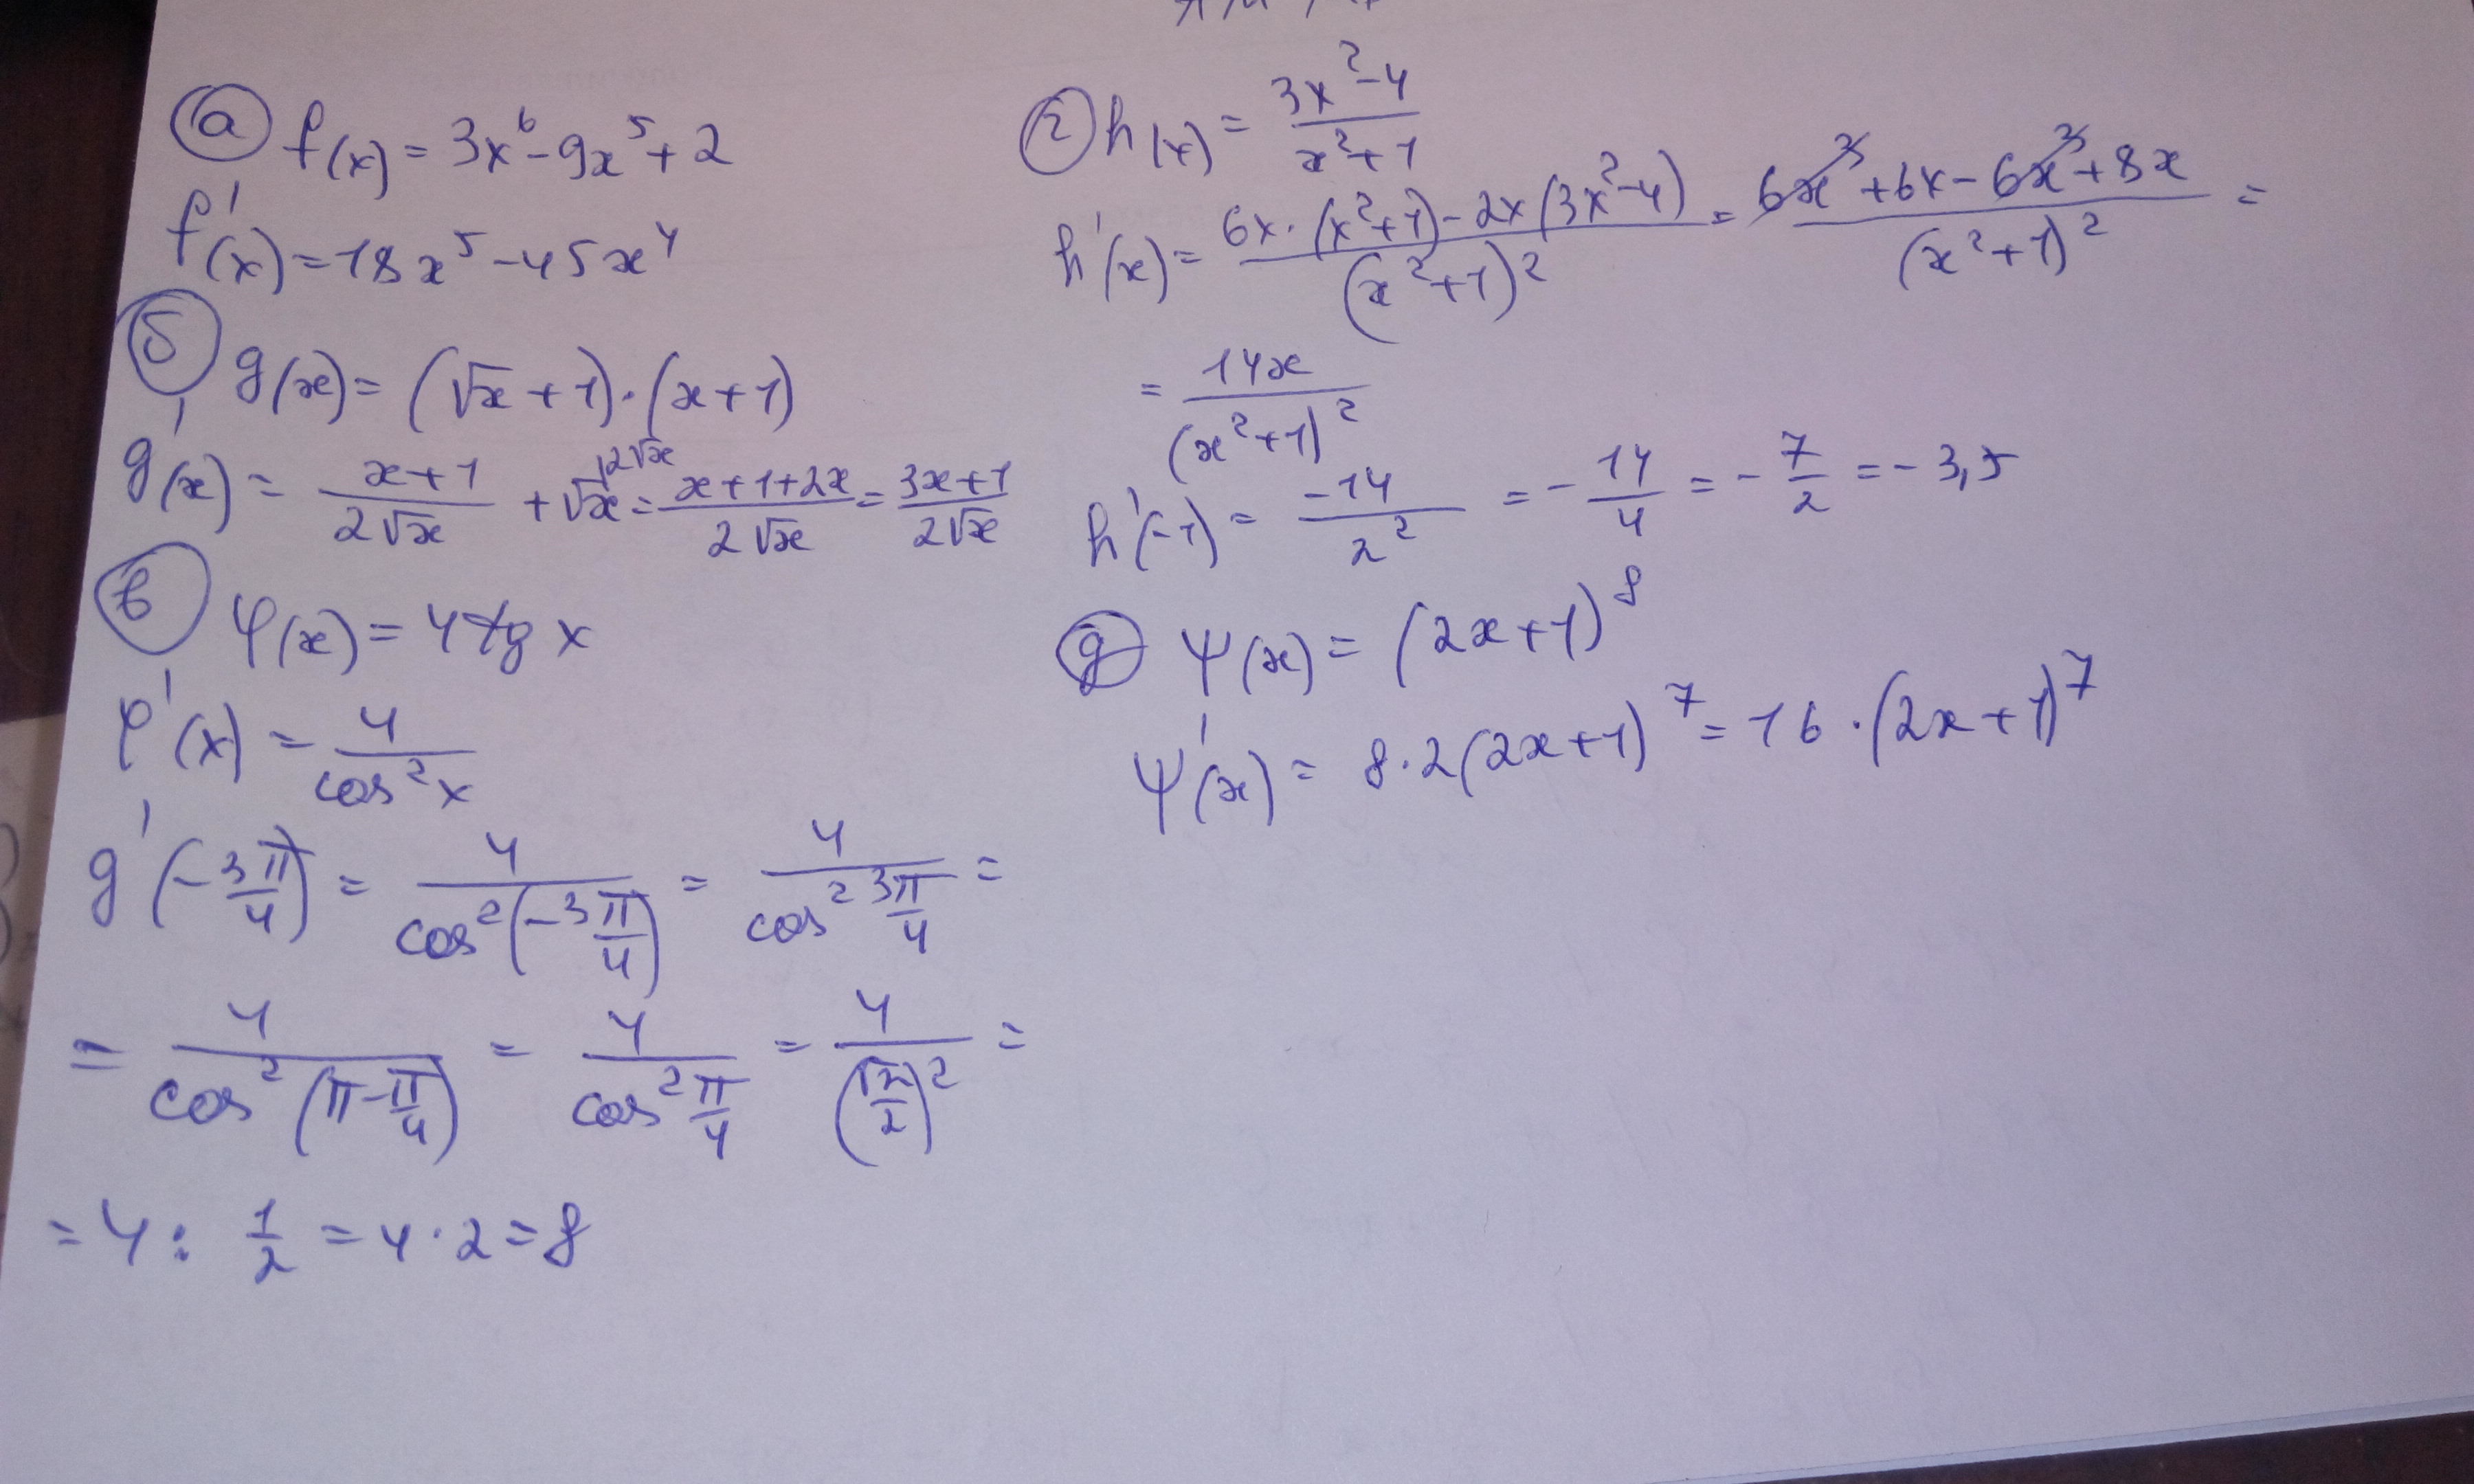 а) f(x) = 3x⁶ - 9x⁵ + 2
f'(x) = 18x⁵ - 45x⁴
б) g(x) = (√x + 1) · (x + 1)
g'(x) = (x+1)/(2√x) + √x^(12√x) = (x+1+2x)/(2√x) = (3x+1)/(2√x)
в) φ(x) = 4 tg x
φ'(x) = 4/(cos²x)
g'(-3π/4) = 4/(cos²(-3π/4)) = 4/(cos² 3π/4) =
= 4/(cos²(π - π/4)) = 4/(cos² π/4) = 4/(√2/2)² =
= 4 : 1/2 = 4 · 2 = 8
г) h(x) = (3x² - 4)/(x² + 1)
h'(x) = (6x · (x²+1) - 2x(3x²-4))/(x²+1)² = (6x³ + 6x - 6x³ + 8x)/(x²+1)² =
= 14x/(x²+1)²
h'(-1) = -14/2² = -14/4 = -7/2 = -3,5
д) ψ(x) = (2x+1)⁸
ψ'(x) = 8·2(2x+1)⁷ = 16 · (2x+1)⁷